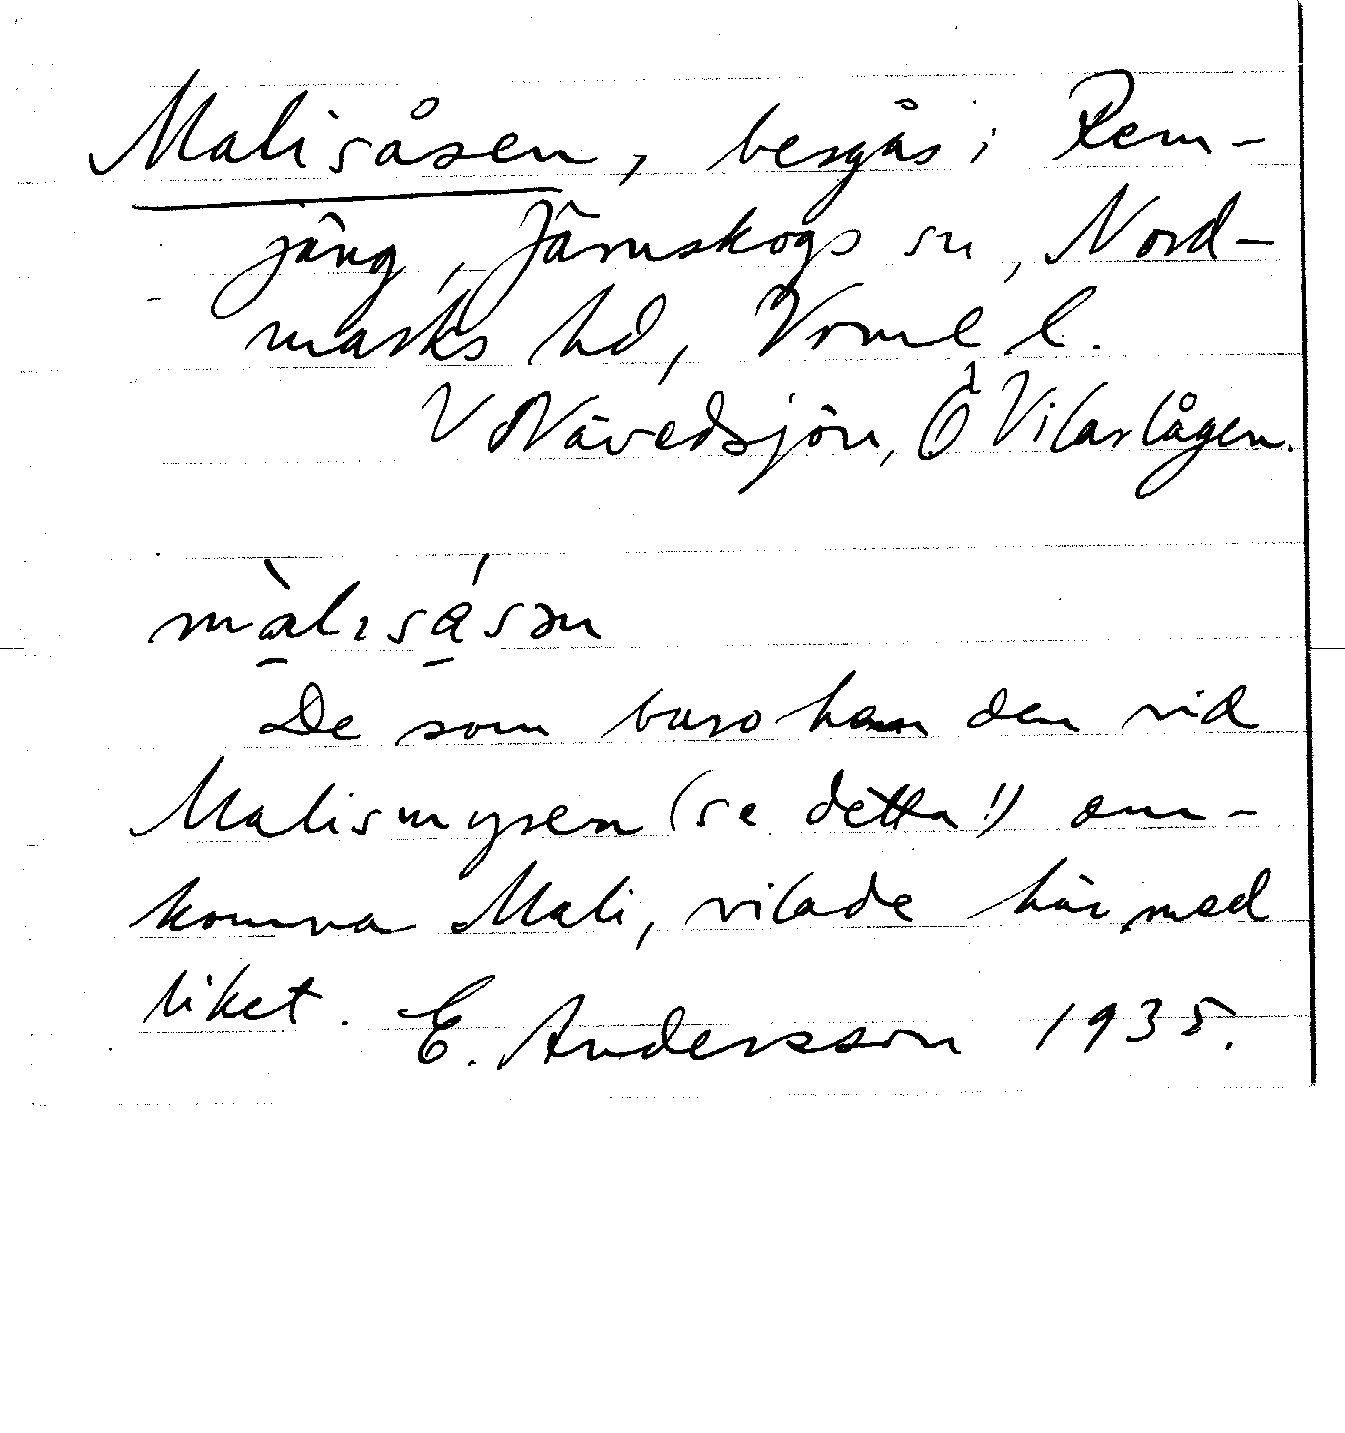 Malisåsen, bergås i Rem-
jäng, Järnskogs sn, Nord-
marks hd, Vrml l.
V Nävedsjön, Ö Vilarlågen.
màlisåsən
De som buro hem den vid
Malismyren (se detta!) om-
komna Mali, vilade här med
liket. E. Andersson 1935.